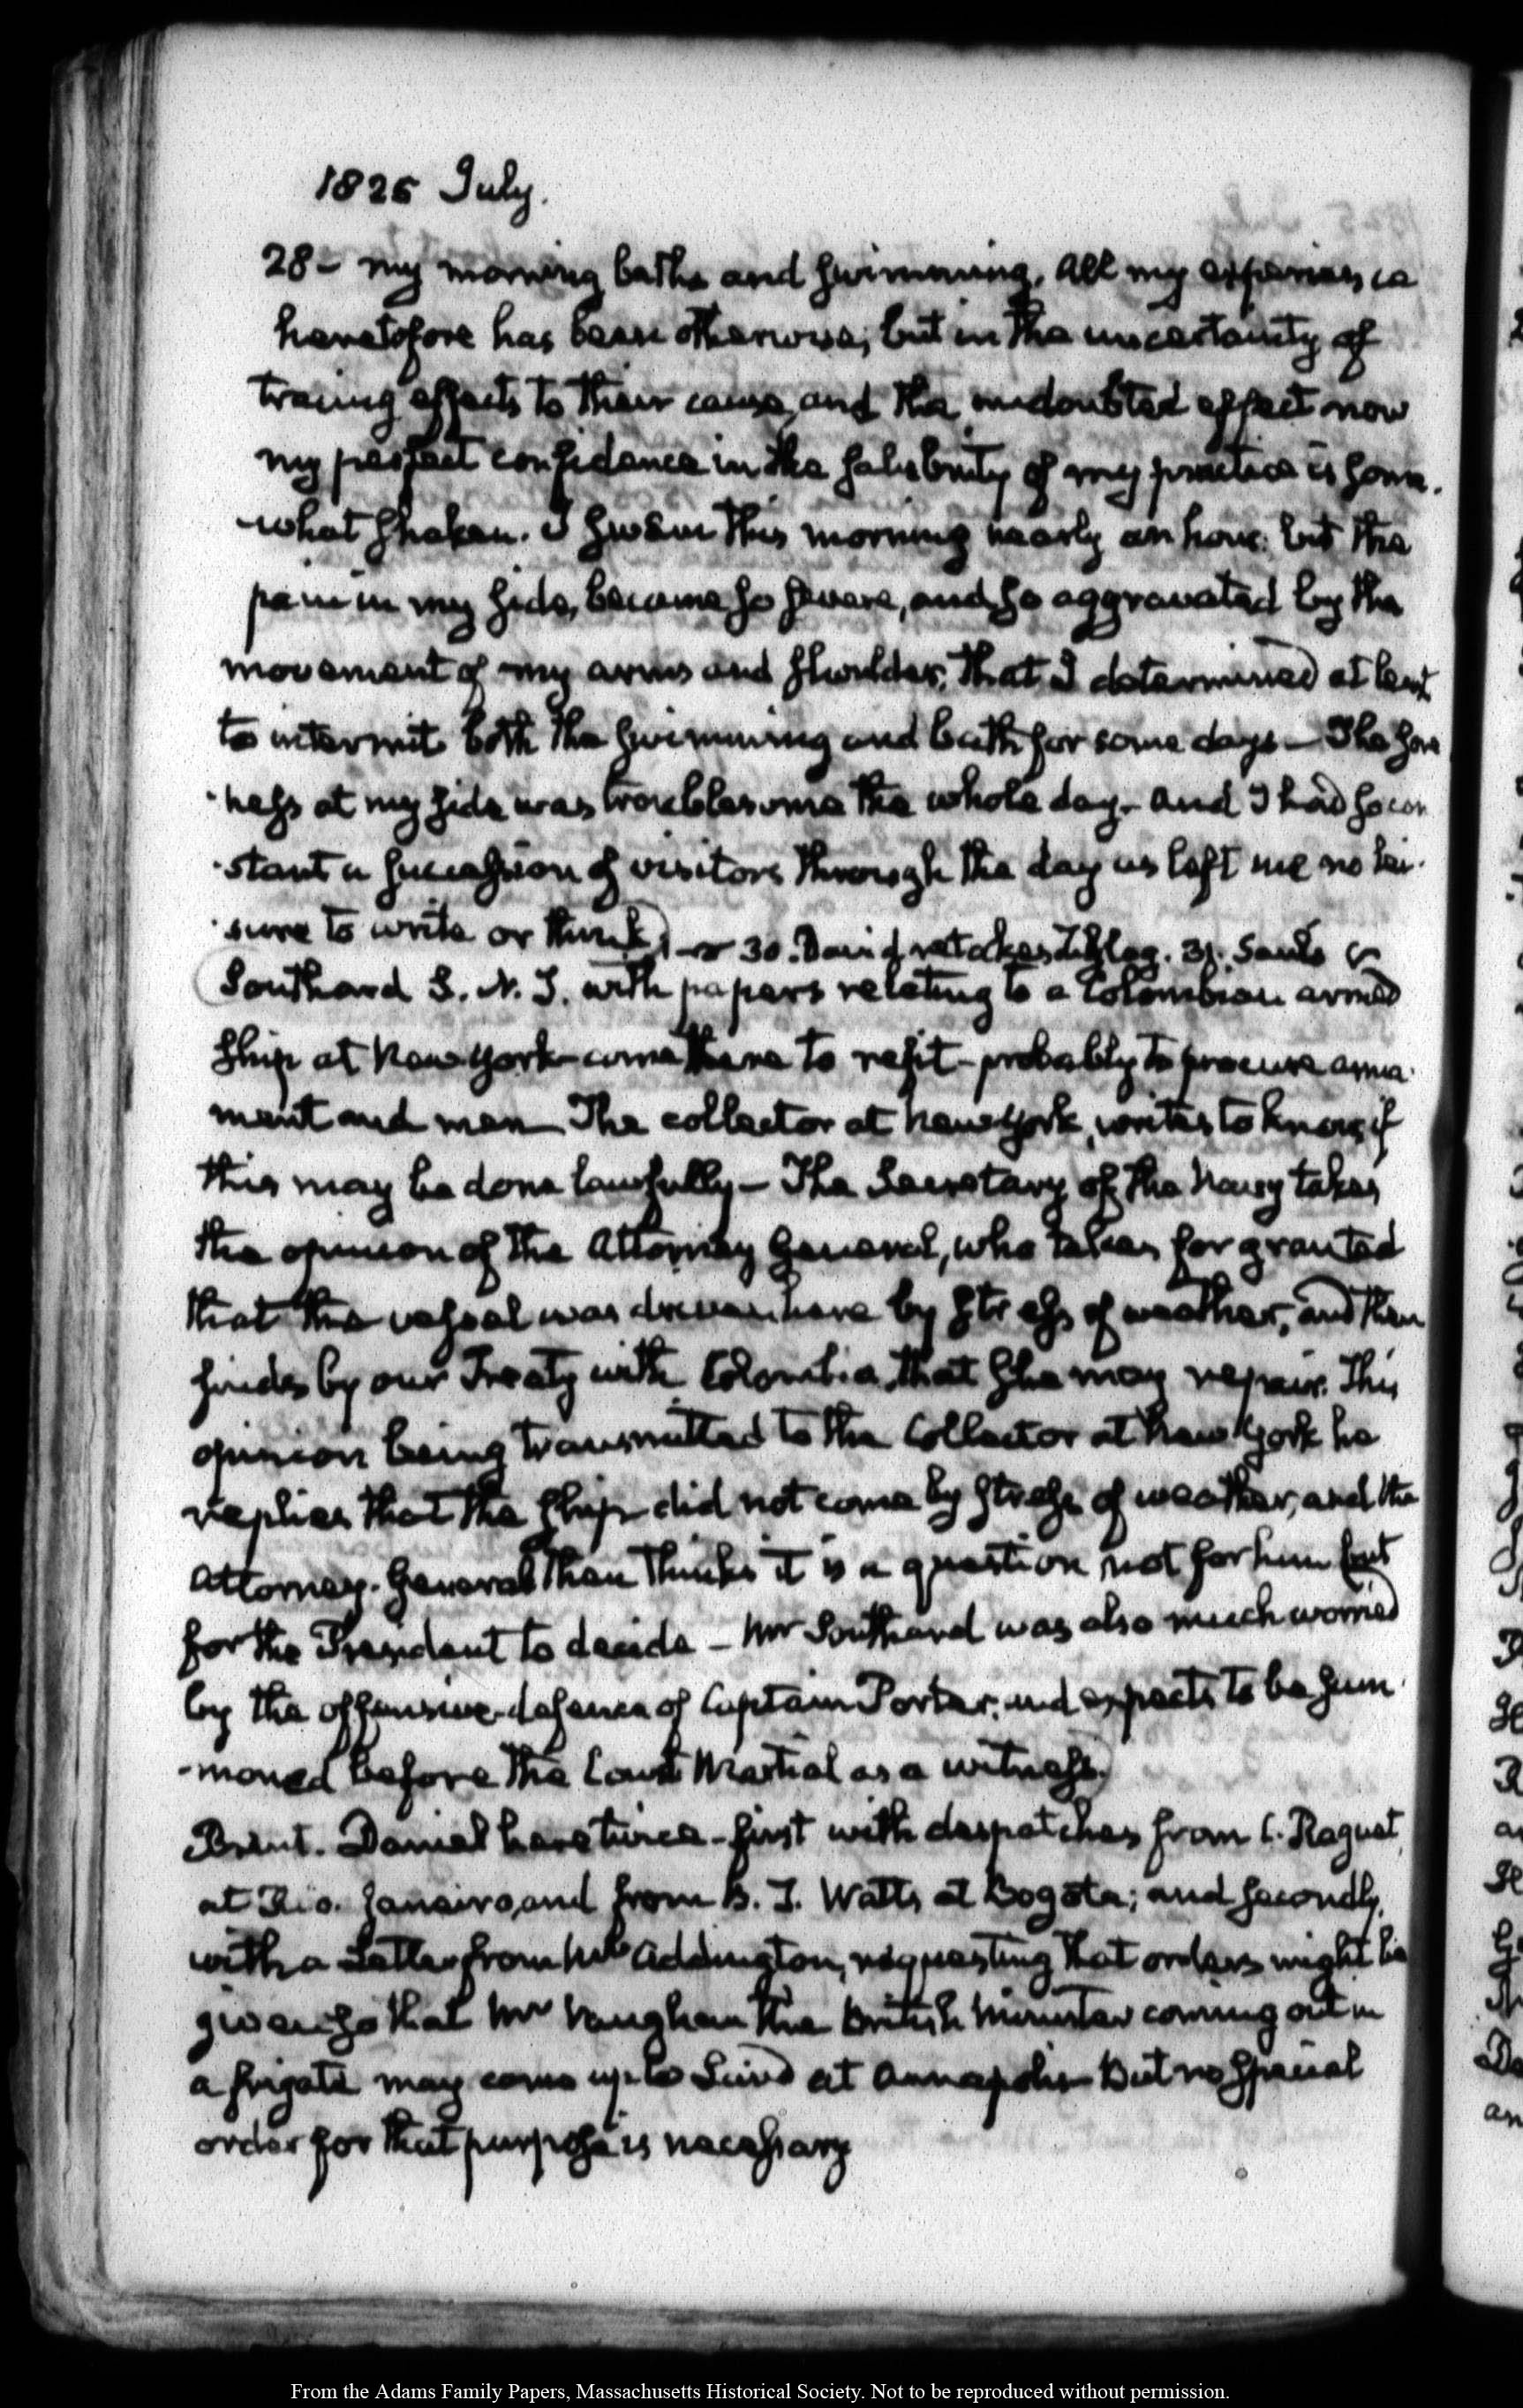 1825 July.
28 – my morning baths and swimming. All my experience
heretofore has been otherwise; but in the uncertainty of
tracing effects to their cause, and the undoubted effect now
my perfect confidence in the salubrity of my practice is some-
-what shaken. I swam this morning nearly an hour: but the
pain in my side, became so severe, and so aggravated by the
movement of my arms and shoulder, that I determined at least
to intermit both the swimming and bath for some days – The sore
-ness at my side was troublesome the whole day – and I had so con
-stant a succession of visitors through the day as left me no lei-
-sure to write or think) 30. David retakes Ziklag. 31. Saul's
(Southard S. N. J. with papers relating to a Colombian armed
ship at New York – come there to refit – probably to procure arma-
ment and men – The collector at New York, writes to know if
this may be done lawfully – The Secretary of the Navy takes
the opinion of the Attorney General, who takes for granted
that the vessel was driven here by stress of weather, and then
finds by our Treaty with Colombia, that she may repair. This
opinion being transmitted to the Collector at New York he
replies that the ship did not come by stress of weather, and the
Attorney-General then thinks it is a question not for him but
for the President to decide – Mr Southard was also much worried
by the offensive defence of Captain Porter, and expects to be sum-
-moned before the Court Martial as a witness.)
Brent. Daniel here twice – first with despatches from C. Raguet,
at Rio. Janeiro, and from B. T. Watts at Bogota; and secondly,
with a Letter from Mr Addington, requesting that orders might be
given so that Mr Vaughan the British Minister coming out in
a frigate may come up to land at Annapolis – But no special
order for that purpose is necessary
From the Adams Family Papers, Massachusetts Historical Society. Not to be reproduced without permission.